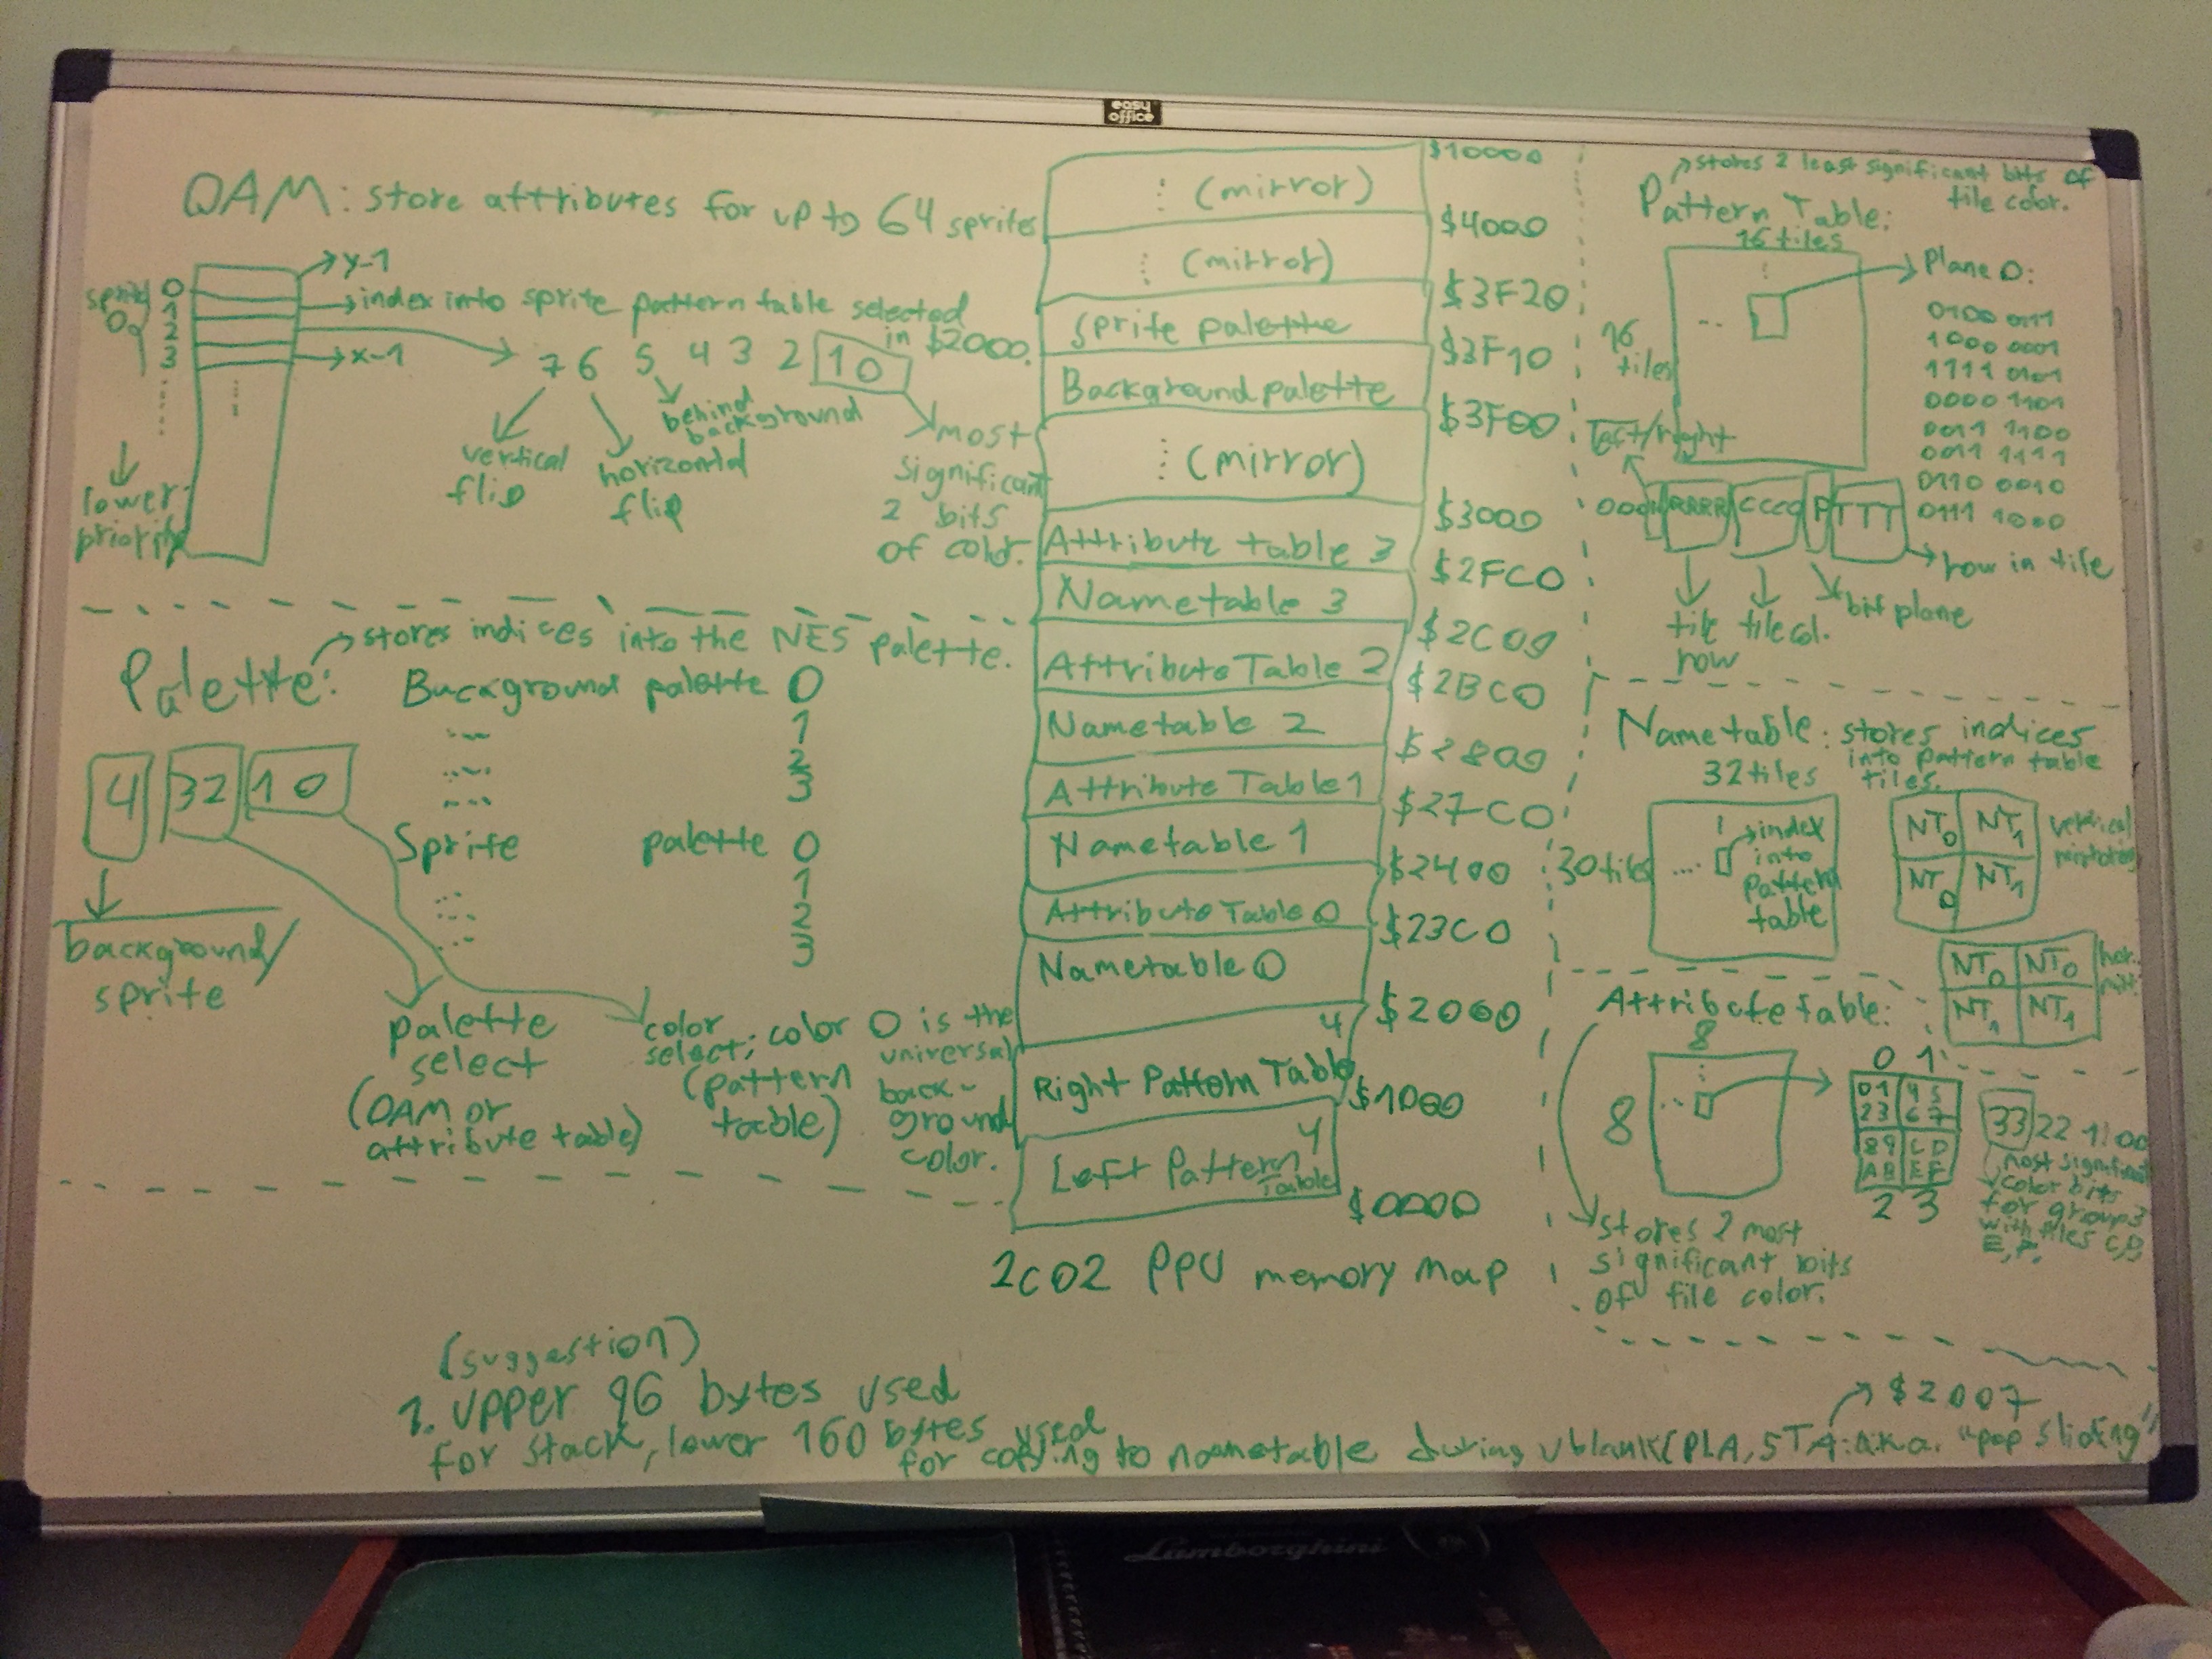 easy
office
OAM: store attributes for up to 64 sprites
sprite 0
0
1
2
3
y-1
index into sprite pattern table selected
in $2000.
x-1
7 6 5 4 3 2 1 0
vertical
flip
horizontal
flip
behind
background
most
significant
2 bits
of color.
lower
priority
Palette:
stores indices into the NES palette.
Background palette 0
1
2
3
Sprite palette 0
1
2
3
4 32 10
background/
sprite
palette
select
(OAM or
attribute table)
color
select; color 0 is the
universal
back-
ground
color.
(pattern
table)
(mirror)
(mirror)
Sprite palette
Background palette
(mirror)
Attribute table 3
Nametable 3
Attribute Table 2
Nametable 2
Attribute Table 1
Nametable 1
Attribute Table 0
Nametable 0
Right Pattern Table
Left Pattern
Table
$10000
$4000
$3F20
$3F10
$3F00
$3000
$2FC0
$2C00
$2BC0
$2800
$27C0
$2400
$23C0
$2000
$1000
$0000
2C02 PPU memory map
stores 2 least significant bits of
tile color.
Pattern Table:
16 tiles
16
tiles
Plane 0:
0100 0111
1000 0001
1111 0101
0000 1101
0011 1100
0011 1111
0110 0010
0111 1000
Left/right
RRRR CCCC P TTT
row in tile
tile
row
tile col.
bit plane
Nametable: stores indices
into pattern table
tiles.
32 tiles
30 tiles
index
into
pattern
table
NT0 NT1
NT0 NT1
vertical
mirroring
NT0 NT0
NT1 NT1
hor.
Attribute table:
8
8
0 1
01 45
23 67
89 CD
AB EF
2 3
33 22 11 00
most significant
color bits
for group 3
with tiles C,D,
E,F.
stores 2 most
significant bits
of tile color.
(suggestion)
1. upper 96 bytes used
for stack, lower 160 bytes used
for copying to nametable during vblank (PLA, STA: a.k.a. "pop sliding"
$2007
Lamborghini